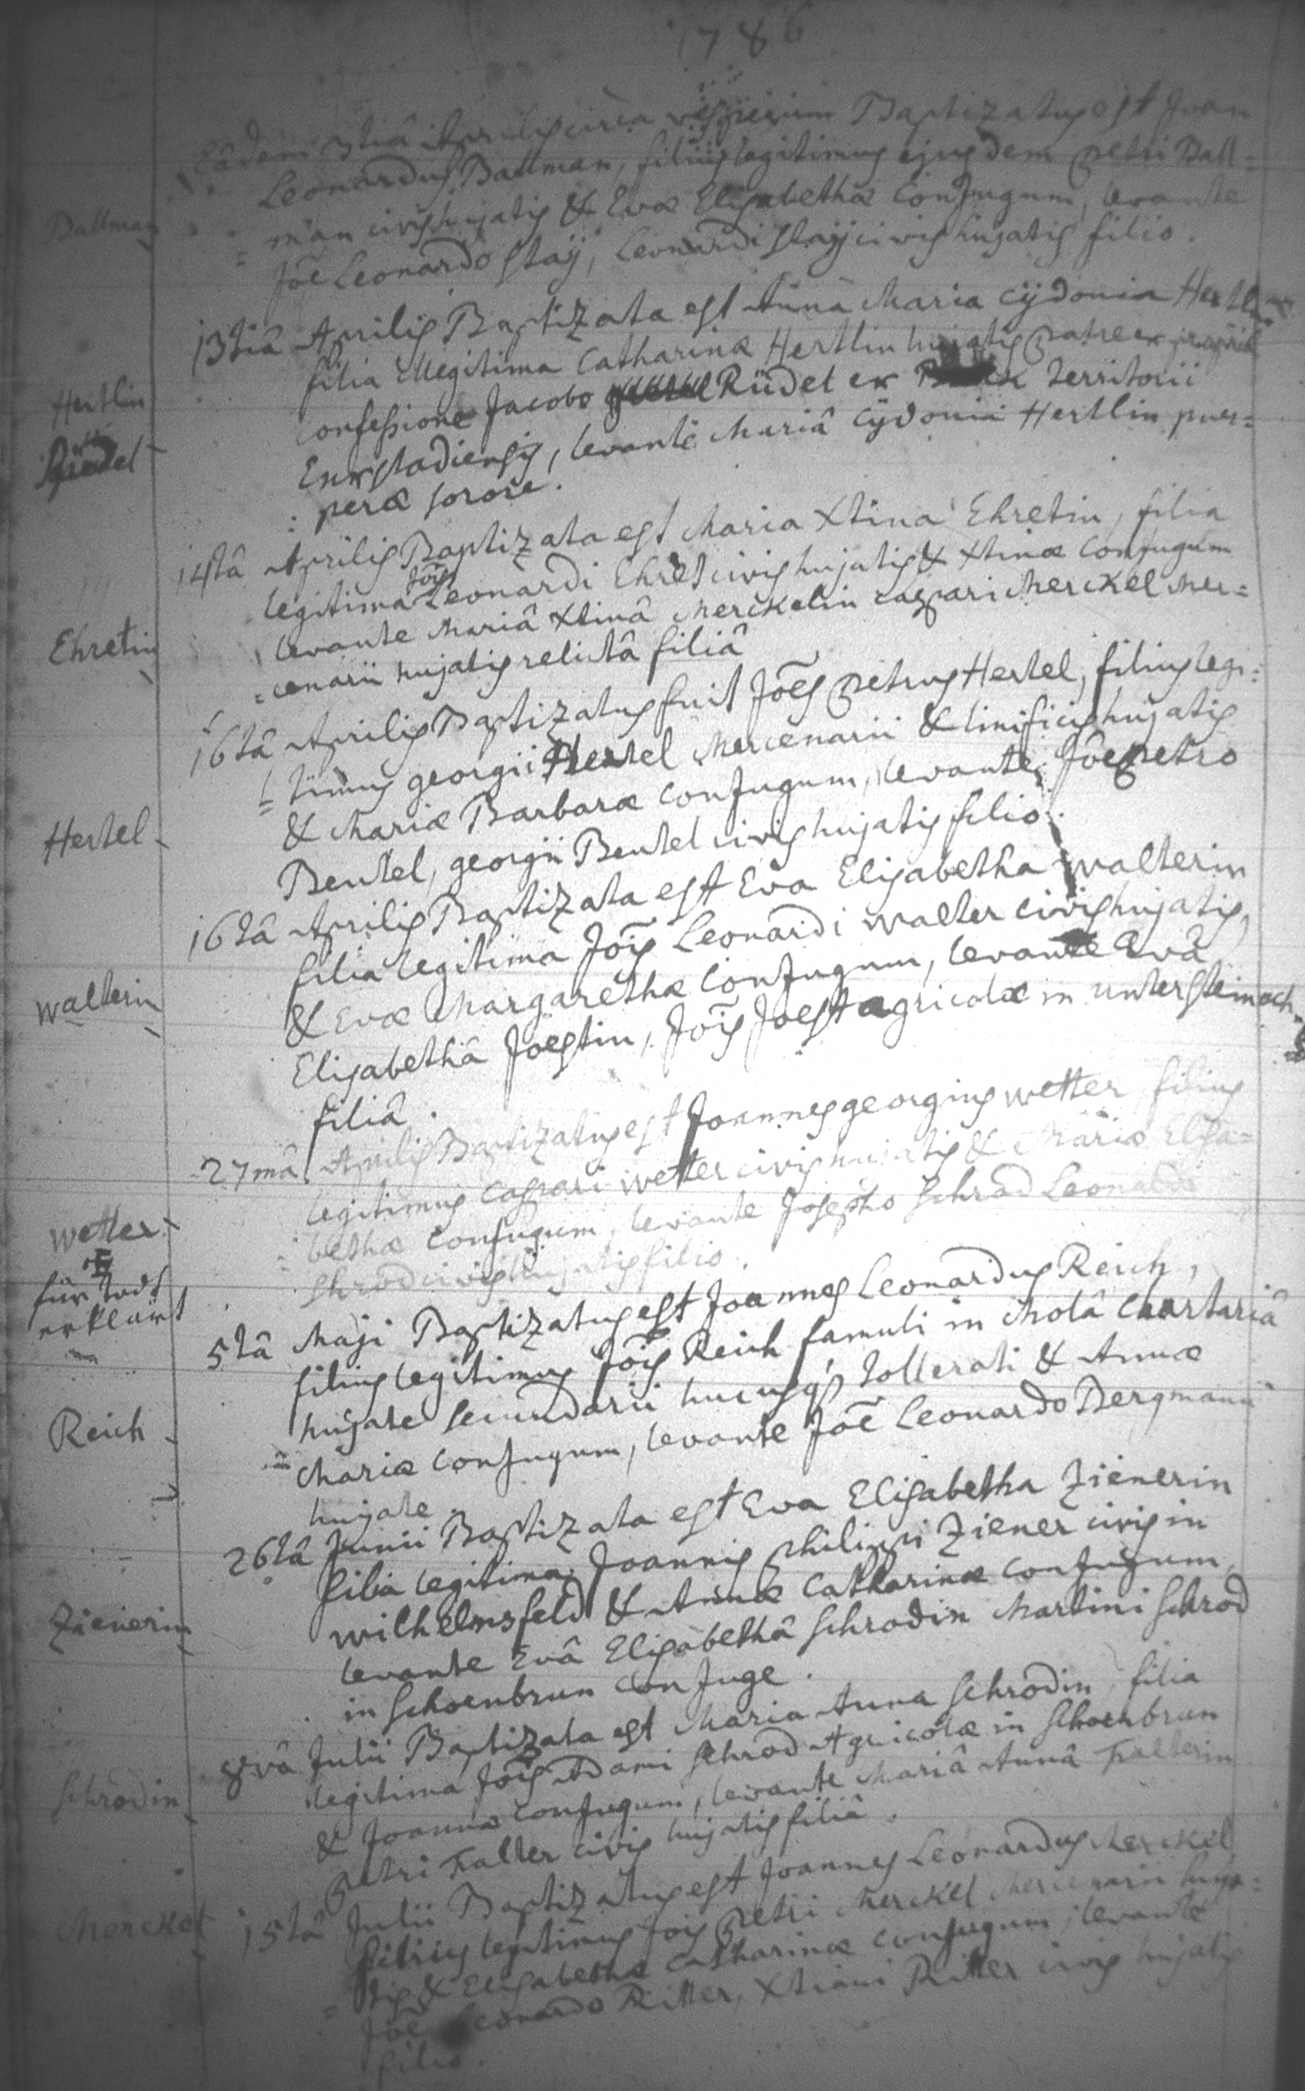 1786
Eâdem 3tiâ Aprilis circa vesperum Baptizatus est Joan
Leonardus Dallman, filius legitimus ejusdem petri Dall=
Dallman
=man civis hujatis & Evæ Elisabethæ Conjugum, levante
Jōe Leonardo Staÿ, Leonardi Staÿ civis hujatis filio.
13tiâ Aprilis Baptizata est Anna Maria Cÿdonia Hertlin
filia illegitima Catharinæ Hertlin hujatis patre ex
Hertlin
confessione Jacobo Rüdel ex territorii
Rüdel
levante Mariâ Cÿdoniâ Hertlin puer=
=peræ sorore.
14tâ Aprilis Baptizata est Maria Xtina Ehretin, filia
legitima Jōis Leonardi Ehret civis hujatis & Xtinæ Conjugum
Ehretin
levante Mariâ Xtinâ Merckelin caspari Merckel Mer=
=cenarii hujatis relictâ filiâ
16tâ Aprilis Baptizatus fuit Jōes petrus Hertel, filius legi=
=timus georgii Hertel Mercenarii & linificis hujatis
Hertel
& Mariæ Barbaræ Conjugum, levante Jōe petro
Beutel, georgii Beutel civis hujatis filio.
16tâ Aprilis Baptizata est Eva Elisabetha Walterin
filia legitima Jōis Leonardi Walter civis hujatis,
Walterin
& Evæ Margarethæ Conjugum, levante Evâ
Elisabethâ Joestin, Jōis Joest agricolæ in Untersteinach
filiâ.
27mâ Aprilis Baptizatus est Joannes georgius Wetter filius
legitimus caspari Wetter civis hujatis & Mariæ Elisa=
Wetter
=bethæ Conjugum, levante Josepho Schrod Leonardi
für todt
Schrod civis hujatis filio.
erklärt
5tâ Maji Baptizatus est Joannes Leonardus Reich,
filius legitimus Jōis Reich famuli in Molâ Chartariâ
hujate secundarii hucusq tollerati & Annæ
Reich
Mariæ Conjugum, levante Jōe Leonardo Bergmann
hujate.
26tâ Junii Baptizata est Eva Elisabetha Zienerin
filia legitima Joannis philippi Ziener civis in
Wilhelmsfeld & Annæ Catharinæ Conjugum
Zienerin
levante Evâ Elisabethâ Schrodin Martini Schrod
in Schoenbrun Conjuge.
8vâ Julii Baptizata est Maria Anna Schrodin filia
legitima Jōis Adami Schrod Agricolæ in Schoenbrun
Schrodin
& Joannæ Conjugum, levante Mariâ Annâ Falterin
petri Falter civis hujatis filiâ.
15tâ Julii Baptizatus est Joannes Leonardus Merckel
Merckel
filius legitimus Jōis petri Merckel Mercenarii huja=
=tis & Elisabethæ Catharinæ Conjugum, levante
Jōe Leonardo Ritter, Xtiani Ritter civis hujatis
filio.